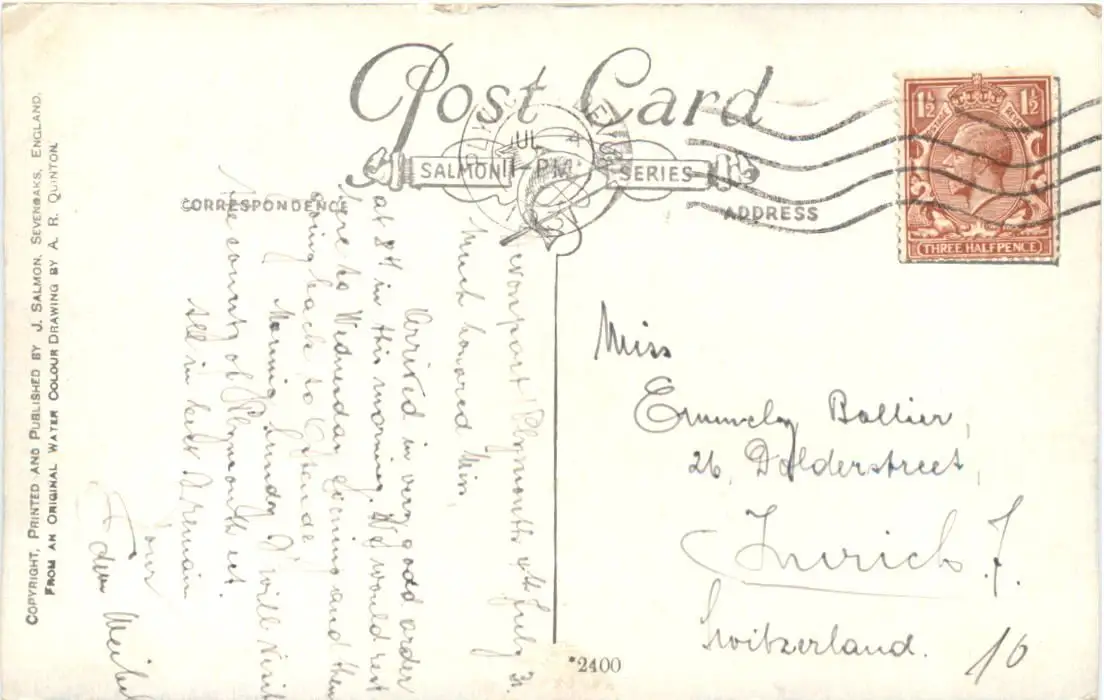 Post Card
SALMON SERIES
CORRESPONDENCE
ADDRESS
PLYMOUTH DEVON
JUL
11-PM
1½ 1½
POSTAGE REVENUE
THREE HALFPENCE
COPYRIGHT, PRINTED AND PUBLISHED BY J. SALMON, SEVENOAKS, ENGLAND.
FROM AN ORIGINAL WATER COLOUR DRAWING BY A. R. QUINTON.
Plymouth 4th July 31
Much honored Miss,
Arrived in very good order
at 8 H in this morning. We would rest
here to Wednesday Evening and then
going back to Ostende
Morning Sunday I will visit
the county of Plymouth ect.
All in best I remain
your
Miss
Ballier,
26, Dolderstreet,
Zurich 7.
Switzerland.
10
*2400